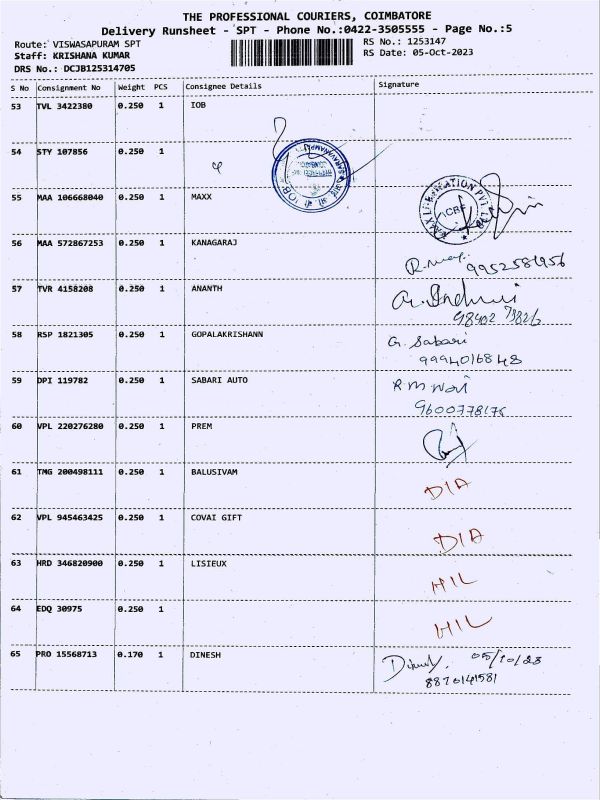 THE PROFESSIONAL COURIERS, COIMBATORE
Delivery Runsheet - SPT - Phone No.:0422-3505555 - Page No.:5
Route: VISWASAPURAM SPT
RS No.: 1253147
Staff: KRISHANA KUMAR
RS Date: 05-Oct-2023
DRS No.: DCJB125314705
S No Consignment No Weight PCS Consignee Details Signature
53 TVL 3422380 0.250 1 IOB
54 STY 107856 0.250 1
55 MAA 106668040 0.250 1 MAXX
56 MAA 572867253 0.250 1 KANAGARAJ
9952581956
57 TVR 4158208 0.250 1 ANANTH
98402 73826
58 RSP 1821305 0.250 1 GOPALAKRISHANN
G. Sabari
9994016848
59 DPI 119782 0.250 1 SABARI AUTO
R M
9600778175
60 VPL 220276280 0.250 1 PREM
61 TMG 200498111 0.250 1 BALUSIVAM
D/A
62 VPL 945463425 0.250 1 COVAI GIFT
D/A
63 HRD 346820900 0.250 1 LISIEUX
HIL
64 EDQ 30975 0.250 1
HIL
65 PRO 15568713 0.170 1 DINESH
05/10/23
8870141581